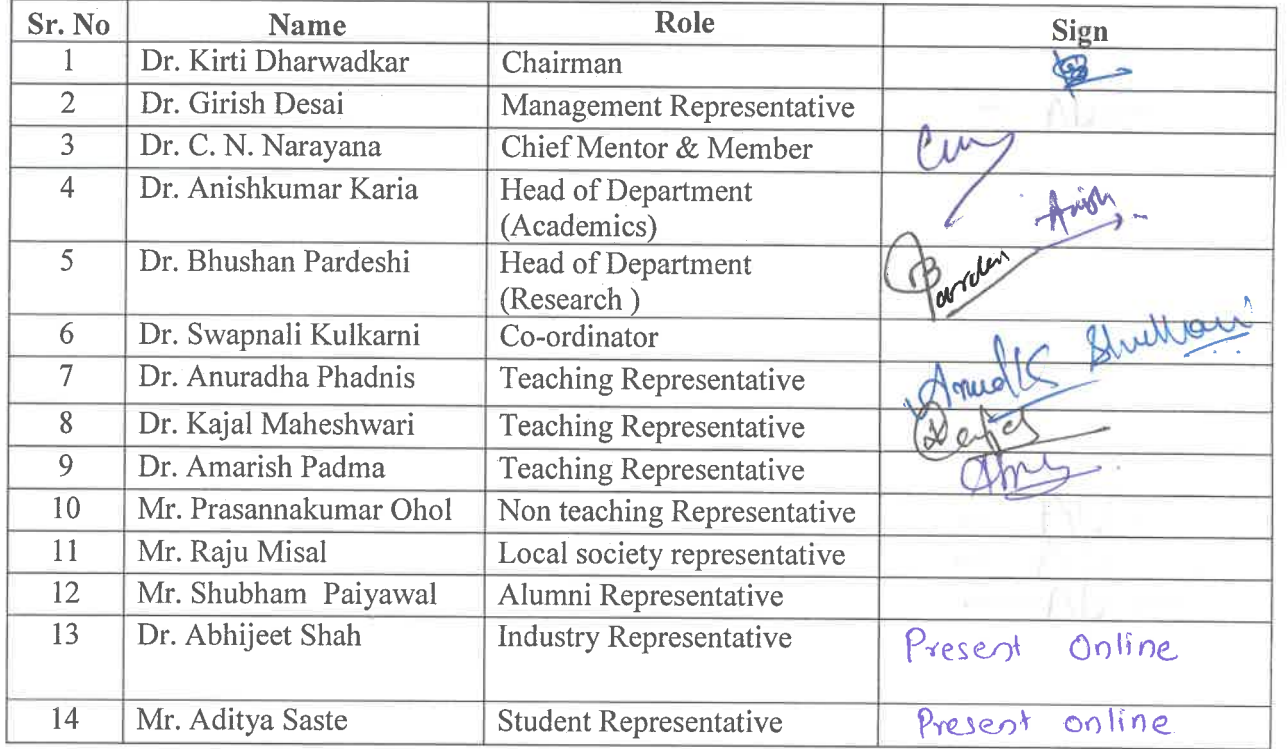 Sr. No Name Role Sign
1 Dr. Kirti Dharwadkar Chairman
2 Dr. Girish Desai Management Representative
3 Dr. C. N. Narayana Chief Mentor & Member
4 Dr. Anishkumar Karia Head of Department
(Academics) Anish
5 Dr. Bhushan Pardeshi Head of Department
(Research )
6 Dr. Swapnali Kulkarni Co-ordinator
7 Dr. Anuradha Phadnis Teaching Representative
8 Dr. Kajal Maheshwari Teaching Representative
9 Dr. Amarish Padma Teaching Representative
10 Mr. Prasannakumar Ohol Non teaching Representative
11 Mr. Raju Misal Local society representative
12 Mr. Shubham Paiyawal Alumni Representative
13 Dr. Abhijeet Shah Industry Representative Present Online
14 Mr. Aditya Saste Student Representative Present online